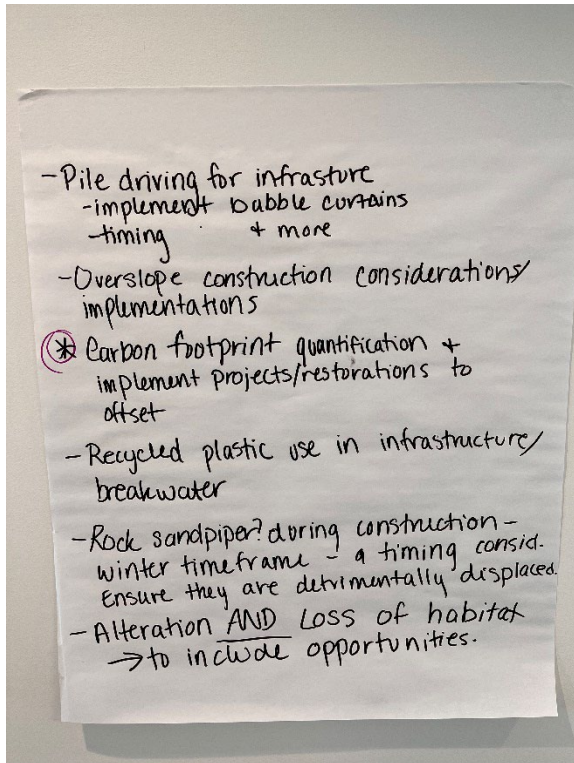 -Pile driving for infrasture
-implement babble curtains
-timing + more
-Overslope construction considerations/
implementations
* Carbon footprint quantification +
implement projects/restorations to
offset
- Recycled plastic use in infrastructure/
breakwater
-Rock sandpiper? during construction -
winter timeframe - a timing consid.
Ensure they are detrimentally displaced.
- Alteration AND Loss of habitat
→ to include opportunities.